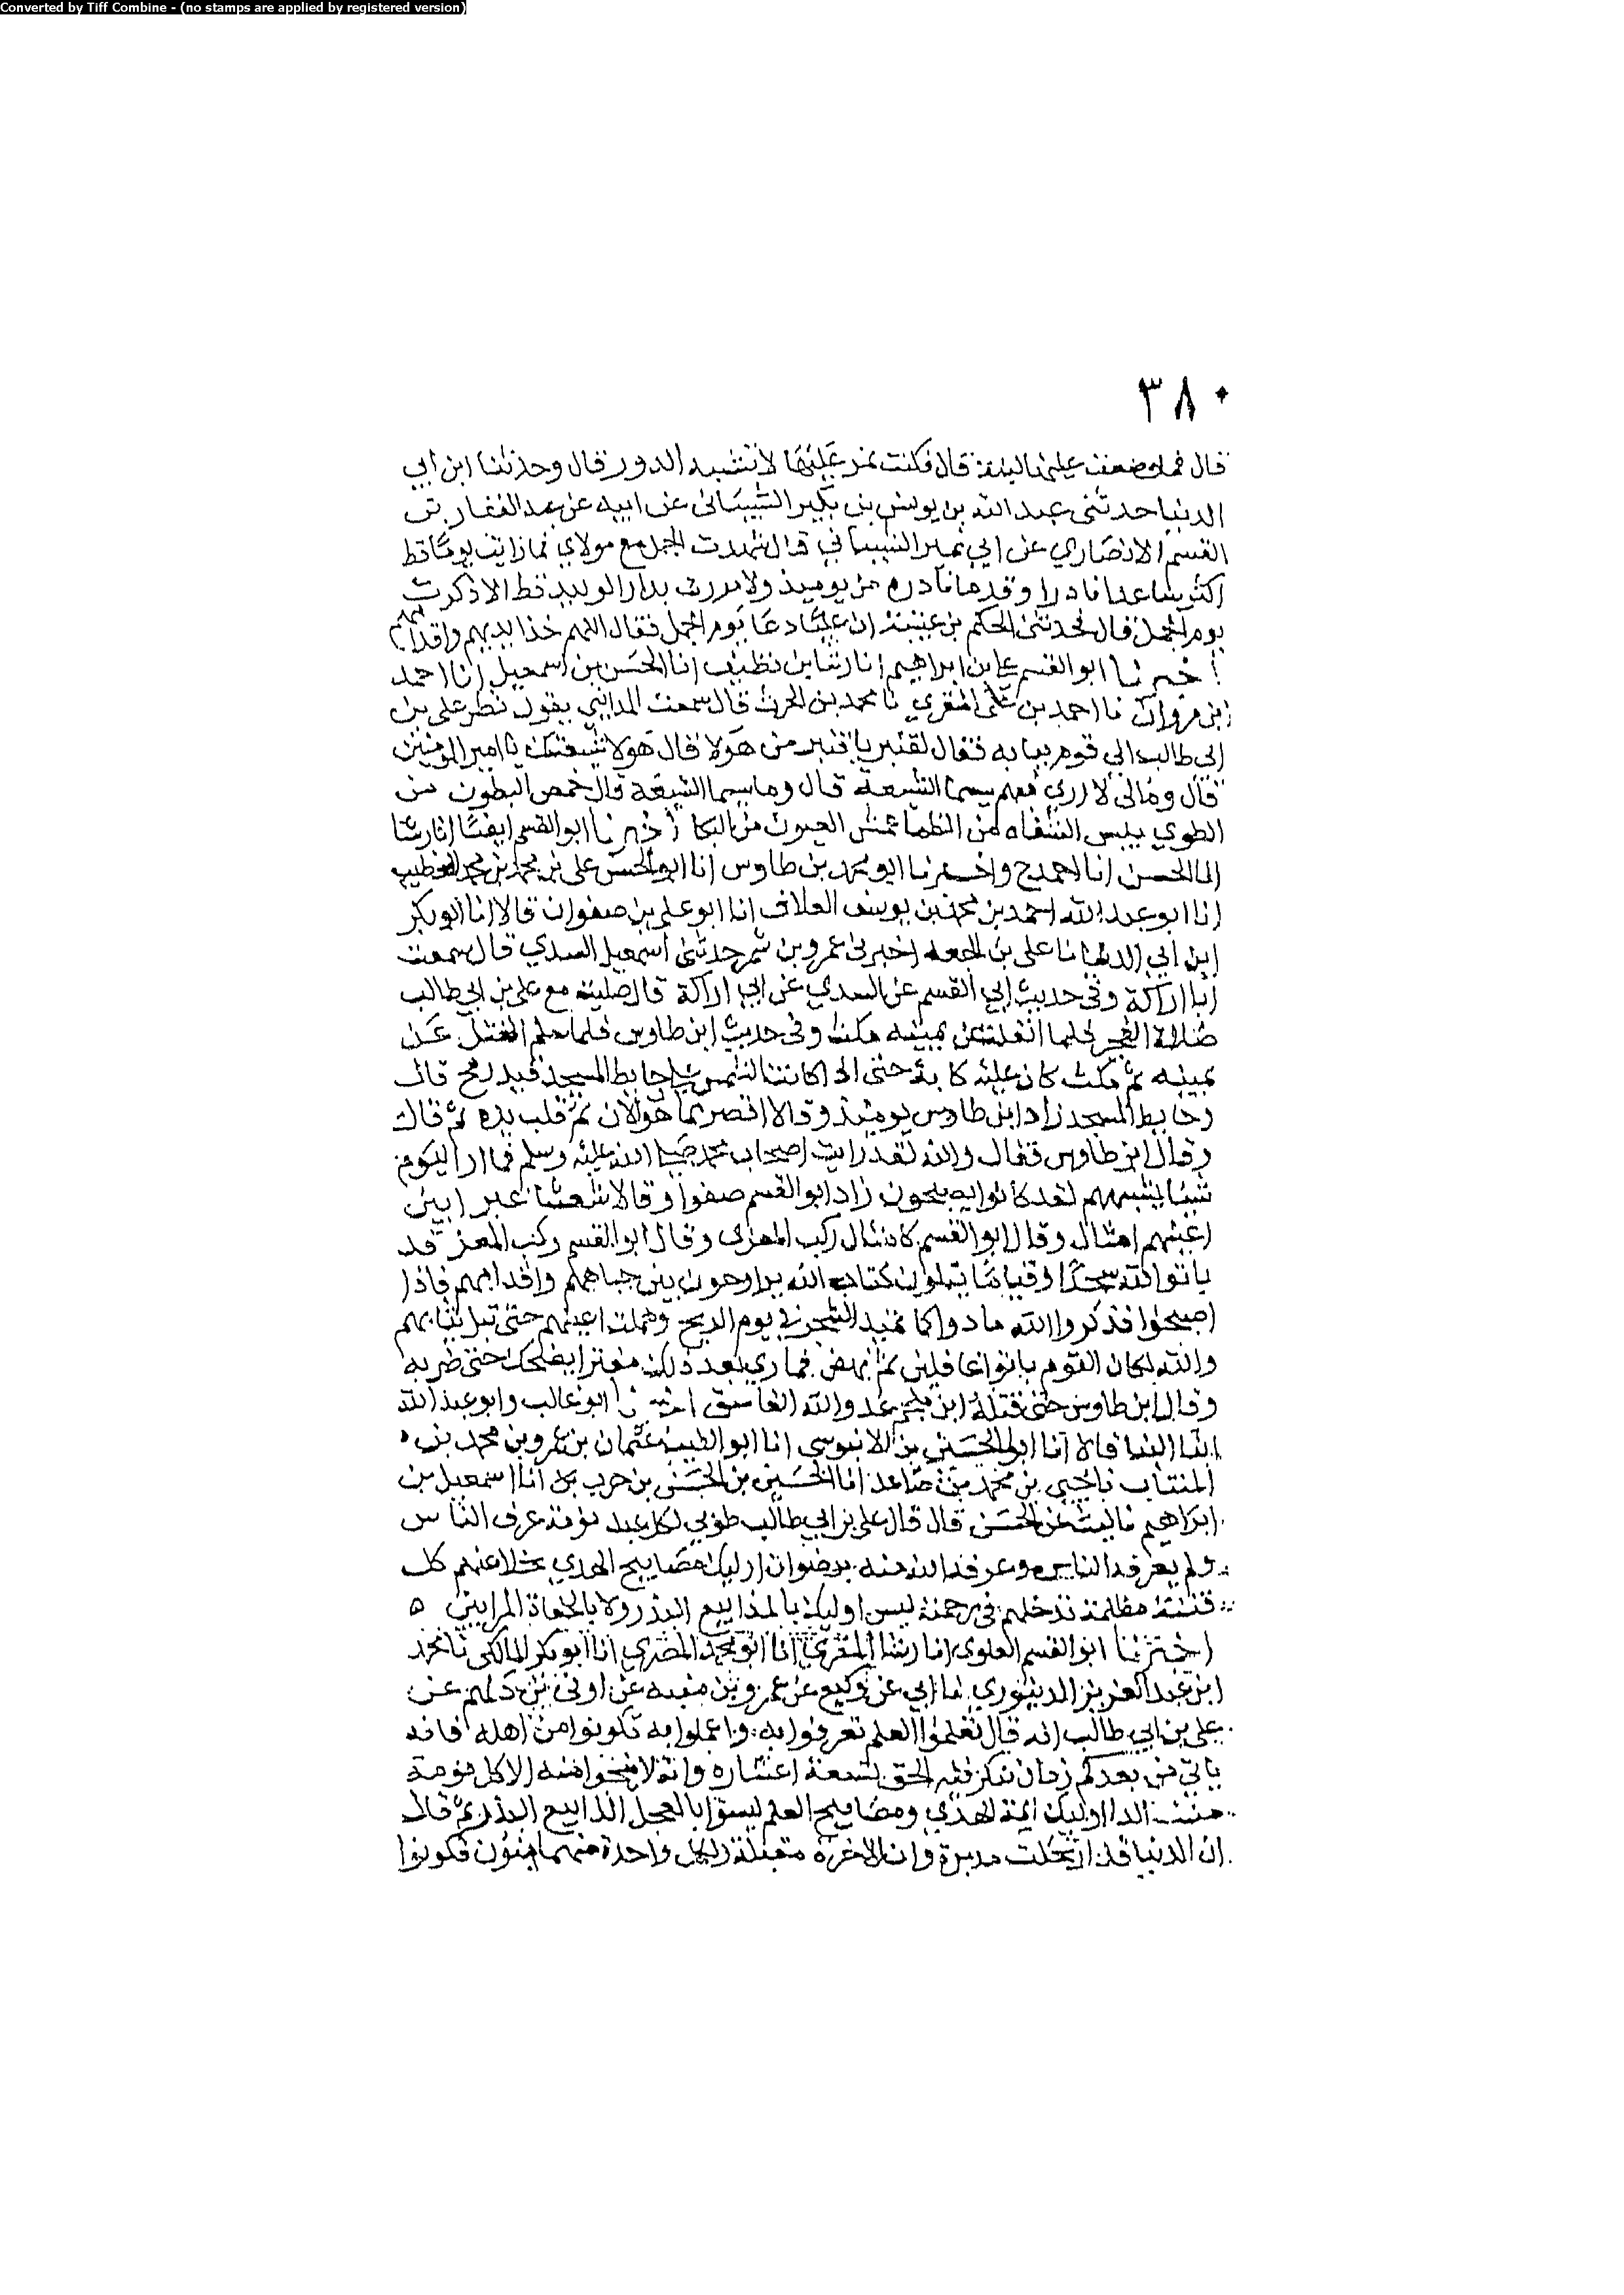 Converted by Tiff Combine - (no stamps are applied by registered version)
٣٨٠
قال فما وضعت عليها لبنة قال فكنت نمر عليها لا تشبه الدور قال وحدثنا ابن ابي
الدنيا حدثني عبد الله بن يونس بن بكير الشيباني عن ابيه عن عبد الغفار بن
القسم الانصاري عن ابي الشيباني قال شهدت الجمل مع مولاي فما رايت يوما قط
اكثر ساعدا نادرا وقدما نادره من يوميذ ولا مررت بدار الوليد قط الا ذكرت
يوم الجمل قال فحدثني الحكم بن عيينة ان عليا دعا يوم الجمل فقال اللهم خذ ايديهم واقدامهم
اخبرنا ابو القسم علي بن ابراهيم انا رشا بن نظيف انا الحسن بن اسمعيل انا احمد
ابن مروان نا احمد بن علي المقري نا محمد بن الحرث قال سمعت المدايني يقول نظر علي بن
ابي طالب الي قوم ببابه فقال لقنبر يا قنبر من هولا قال هولا شيعتك يا امير المومنين
قال ومالي لا اري فيهم سيما الشيعة قال وما سيما الشيعة قال خمص البطون من
الطوي يبس الشفاه من الظما عمش العيون من البكا اخبرنا ابو القسم ايضا انا رشا
انا الحسن انا احمد ح واخبرنا ابو محمد بن طاوس انا ابو الحسن علي بن محمد بن محمد الخطيب
انا ابو عبد الله احمد بن محمد بن يوسف العلاف انا ابو علي بن صفوان قالا انا ابو بكر
ابن ابي الدنيا نا علي بن الجعد اخبرني عمرو بن شمر حدثني اسمعيل السدي قال سمعت
ابا اراكة وفي حديث ابي القسم عن السدي عن ابي اراكة قال صليت مع علي بن ابي طالب
صلاة الفجر فلما انفتل عن يمينه مكث وفي حديث ابن طاوس فلما سلم انفتل عن
يمينه ثم مكث كان عليه كابة حتي اذا كانت الشمس علي حايط المسجد قيد رمح قال
وحايط المسجد زاد ابن طاوس يوميذ وقالا اقصر مما هو الان ثم قلب يده ثم قال
وقال ابن طاوس فقال والله لقد رايت اصحاب محمد صلي الله عليه وسلم فما اري اليوم
شيا يشبههم لقد كانوا يصبحون زاد ابو القسم صفرا وقالا شعثا غبرا بين
اعينهم امثال وقال ابو القسم كامثال ركب المعزي وقال ابو القسم ركب المعز قد
باتوا لله سجدا وقياما يتلون كتاب الله يراوحون بين جباههم واقدامهم فاذا
اصبحوا فذكروا الله مادوا كما يميد الشجر في يوم الريح وهملت اعينهم حتي تبل ثيابهم
والله لكان القوم باتوا غافلين ثم نهض فما ري بعد ذلك مفترا يضحك حتي ضربه
وقال ابن طاوس حتي قتله ابن ملجم عدو الله الفاسق اخبرنا ابو غالب وابو عبد الله
ابنا البنا قالا انا ابو الحسين بن الابنوسي انا ابو الطيب عثمان بن عمرو بن محمد بن
المنتاب نا يحيي بن محمد بن صاعد انا الحسين بن الحسن بن حرب انا اسمعيل بن
ابراهيم نا ليث عن الحسن قال قال علي بن ابي طالب طوبي لكل عبد نومة عرف الناس
ولم يعرفه الناس وعرفه الله منه برضوان اوليك مصابيح الهدي تجلا عنهم كل
فتنة مظلمة تدخلهم في رحمته ليس اوليك بالمذاييع البذر ولا بالجفاة المرايين ٥
اخبرنا ابو القسم العلوي انا رشا المقري انا ابو محمد المصري انا ابو بكر المالكي نا محمد
ابن عبد العزيز الدينوري نا ابي عن وكيع عن عمرو بن منبه عن اوفي بن دلهم عن
علي بن ابي طالب انه قال تعلموا العلم تعرفوا به واعملوا به تكونوا من اهله فانه
ياتي من بعدكم زمان ينكر فيه الحق تسعة اعشاره وانه لا ينجوا منه الا كل نومة
اوليك ايمة الهدي ومصابيح العلم ليسوا بالعجل المذاييع البذر ثم قال
ان الدنيا قد ارتحلت مدبرة وان الاخرة مقبلة ولكل واحدة منهما بنون فكونوا